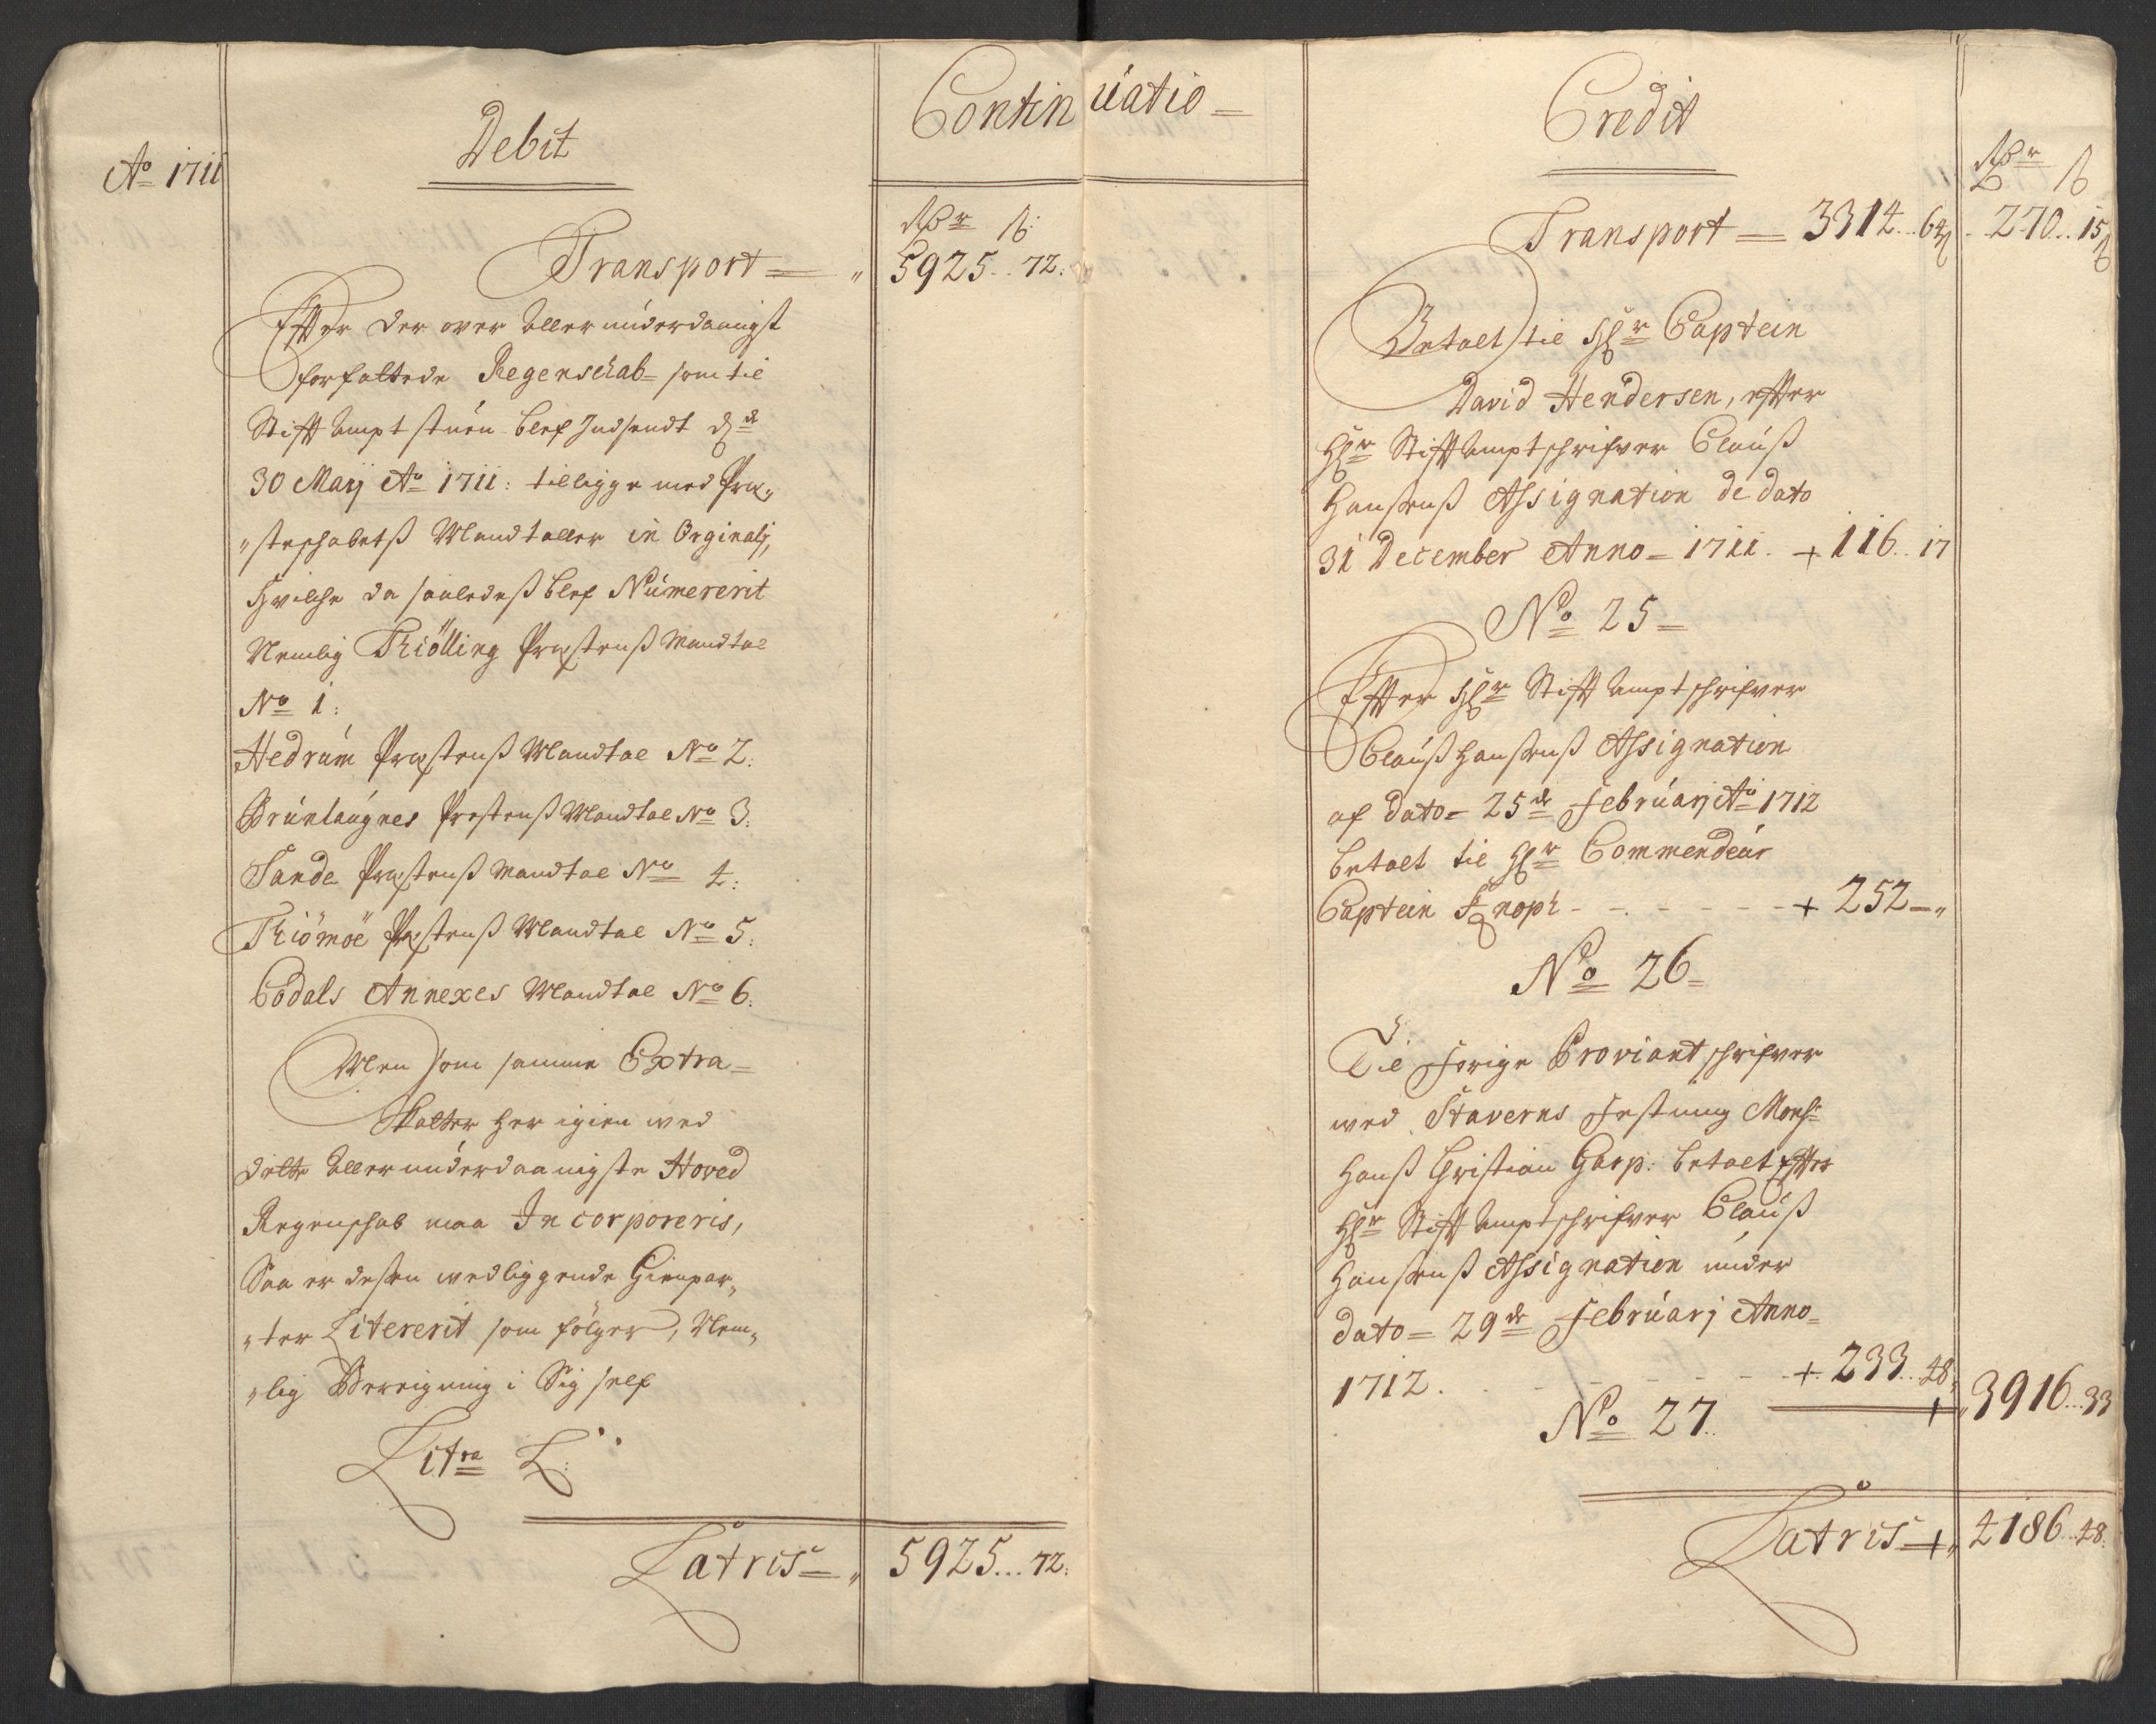 Continuatio
Ao 1711
Debit
Rdr ß:
Transport = " 5925.. 72:
Effter der over allerunderdaanigst
forfattede Regenschab= som til
Stifft Ampt stuen blef Indsendt d: 
30 Maij Ao 1711: tilligge med Præ„
„steschabetß Mandtaller in Orginalj,
Hvilche da saaledeß blef Númererit
Nemlig Thiölling Præstenß Mandtal
No 1:
Hedrúm Præstenß Mandtal No 2:
Brúnlaúgnes Prestenß Mandtal No 3:
Sande Præstenß Mandtal No 4:
Thiömöe Præstenß Mandtal No 5:
Codals Annexes Mandtal No 6:
Men som samme Extra=
Skatter her igien ved
dette allerunderdaanigste Hoved
Regenschab maa Incorporeris,
Saa er deßen vedliggende Gienpar„
„ter Litererit som fölger, Nem„
„lig Beregning i Sig self
Litra L:
Latris = " 5925... 72:
Credit
Rdr ß
Transport = 3314.. 64ß 270.. 15ß
Betalt til Hr Captein
David Hendersen, efter
Hr Stifft Amptschrifver Clauß
Hanßenß Assignation de dato
31 December Anno = 1711. + 116.. 17
No 25 =
Effter Hr Stifft Amptschrifver
Claúß Hanßenß Assignation
af dato = 25de Febrúarj Ao 1712
betalt til Hr Commendeúr
Captein Knoph - - - - - - + 252 — „
No 26 =
Til forige Proviantschrifver
ved Staverns Festning Monsr
Hanß Christian Garp: betalt Effter
Hr Stifft Amptschrifver Claúß
Hanßenß Assignation únder
dato = 29de Febrúarj Anno =
1712. - - - - - + 233.. 48„ 3916... 33
No 27.
Latris = + „ 4186... 48.